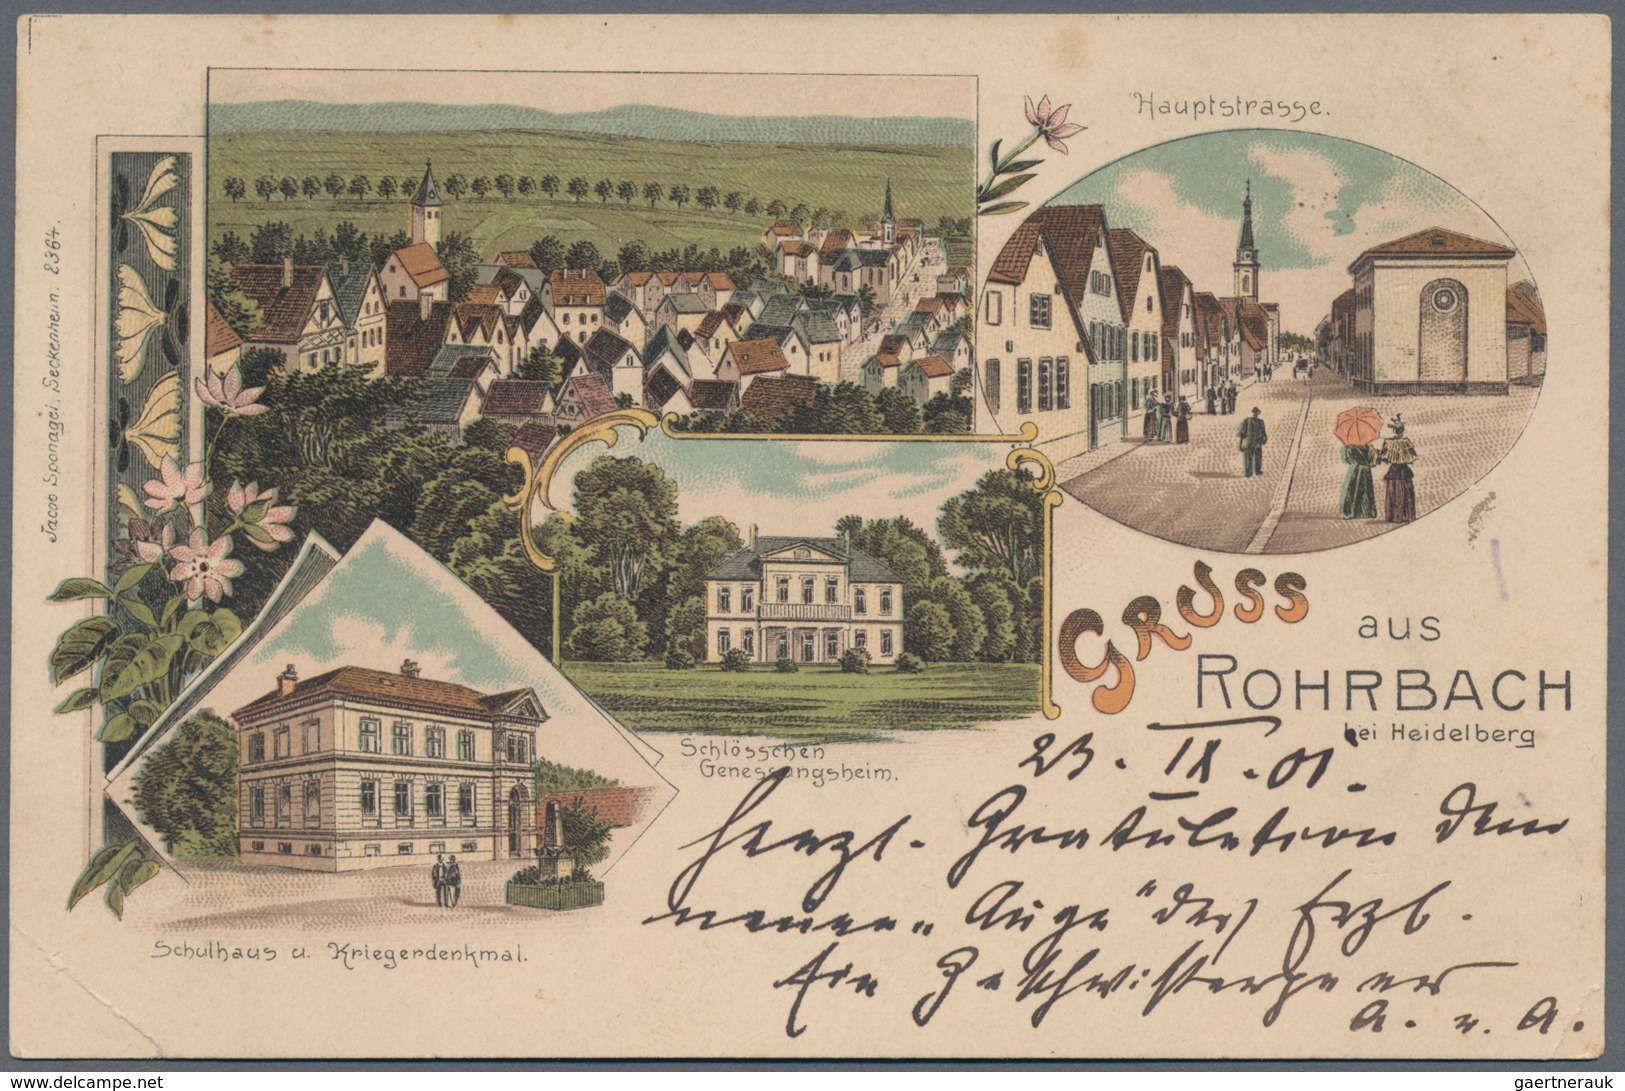 Jacob Sponagel, Seckenheim. 2364.
Hauptstrasse.
GRUSS
aus
ROHRBACH
bei Heidelberg
Schlösschen
Genessungsheim.
Schulhaus u. Kriegerdenkmal.
23. IX. 01.
Herzl. Gratulation dem
neuen „Auge" des Erzb.
Ein Geschwisterpaar
A. u. A.
© the-delcampe.website
gaertnerauk